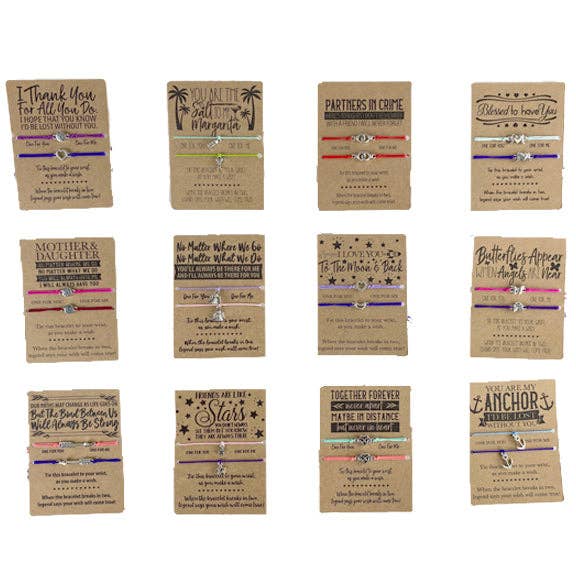 I Thank You
For All You Do.
I HOPE THAT YOU KNOW
I'D BE LOST WITHOUT YOU.
One For You
One For Me
Tie this bracelet to your wrist,
as you make a wish.
When the bracelet breaks in two,
legend says your wish will come true!
YOU ARE THE
Salt TO MY
Margarita
ONE FOR YOU
ONE FOR ME
TIE THIS BRACELET TO YOUR WRIST
AS YOU MAKE A WISH
WHEN THE BRACELET BREAKS IN TWO,
LEGEND SAYS YOUR WISH WILL COME TRUE!
PARTNERS IN CRIME
WITH A FRIEND YOU'LL NEVER FORGET
ONE FOR YOU
ONE FOR ME
Tie this bracelet to your wrist,
as you make a wish.
When the bracelet breaks in two,
legend says your wish will come true!
Blessed to have You
ONE FOR YOU
ONE FOR ME
Tie this bracelet to your wrist,
as you make a wish.
When the bracelet breaks in two,
legend says your wish will come true!
MOTHER &
DAUGHTER
NO MATTER WHERE WE GO
NO MATTER WHAT WE DO
I WILL ALWAYS HAVE YOU
ONE FOR YOU
ONE FOR ME
Tie this bracelet to your wrist,
as you make a wish.
When the bracelet breaks in two,
legend says your wish will come true!
No Matter Where We Go
No Matter What We Do
YOU'LL ALWAYS BE THERE FOR ME
AND I'LL ALWAYS BE THERE FOR YOU
One For You
One For Me
Tie this bracelet to your wrist,
as you make a wish.
When the bracelet breaks in two,
legend says your wish will come true!
I LOVE YOU
To The Moon & Back
ONE FOR YOU
ONE FOR ME
Tie this bracelet to your wrist,
as you make a wish.
When the bracelet breaks in two,
legend says your wish will come true!
Butterflies Appear
WHEN Angels ARE Near
ONE FOR YOU
ONE FOR ME
TIE THIS BRACELET TO YOUR WRIST
AS YOU MAKE A WISH
WHEN THE BRACELET BREAKS IN TWO,
LEGEND SAYS YOUR WISH WILL COME TRUE!
OUR PATHS MAY CHANGE AS LIFE GOES ON
But The Bond Between Us
Will Always Be Strong
ONE FOR YOU
ONE FOR ME
Tie this bracelet to your wrist,
as you make a wish.
When the bracelet breaks in two,
legend says your wish will come true!
FRIENDS ARE LIKE
Stars
YOU DON'T ALWAYS
SEE THEM BUT YOU KNOW
THEY ARE ALWAYS THERE
ONE FOR YOU
ONE FOR ME
Tie this bracelet to your wrist,
as you make a wish.
When the bracelet breaks in two,
legend says your wish will come true!
TOGETHER FOREVER
never apart
MAYBE IN DISTANCE
but never in heart
ONE FOR YOU
ONE FOR ME
Tie this bracelet to your wrist,
as you make a wish.
When the bracelet breaks in two,
legend says your wish will come true!
YOU ARE MY
ANCHOR
I'D BE LOST
WITHOUT YOU
ONE FOR YOU
ONE FOR ME
Tie this bracelet to your wrist,
as you make a wish.
When the bracelet breaks in two,
legend says your wish will come true!